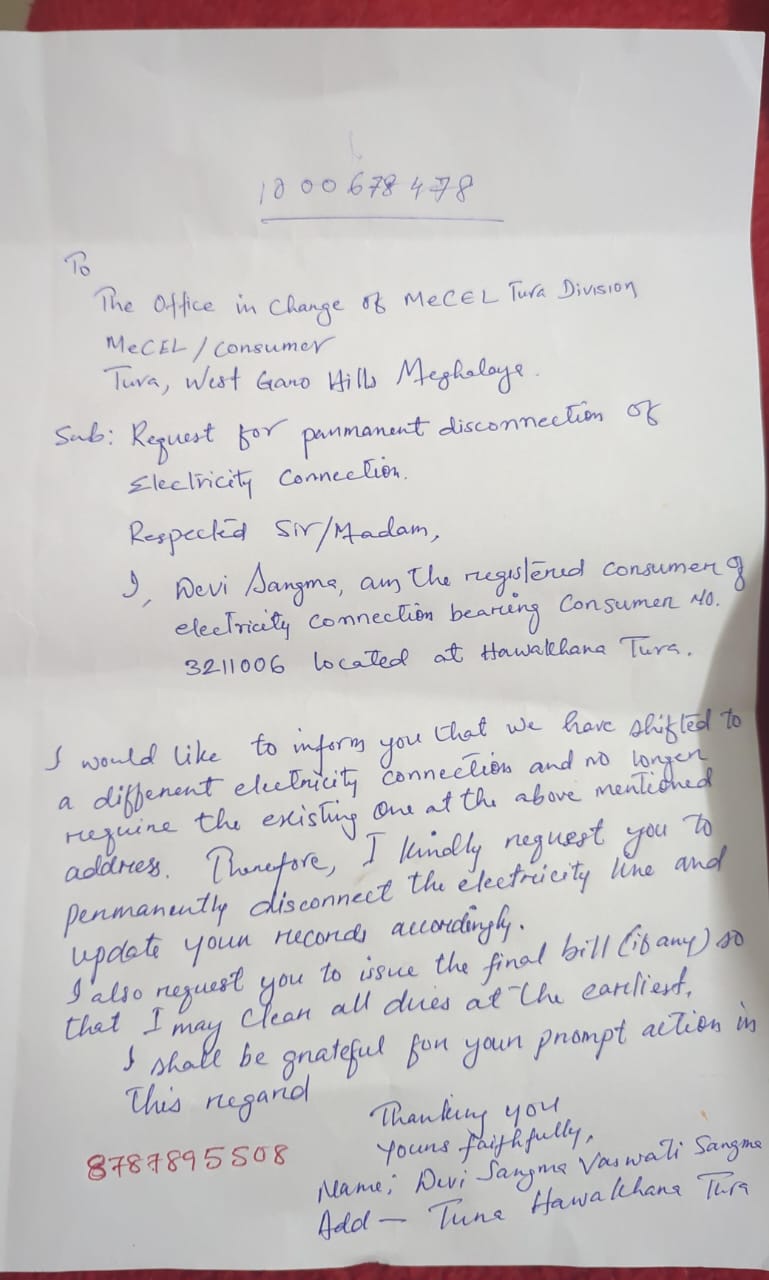 1000678478
To
The Office in Change of MeCEL Tura Division
MeCEL/Consumer
Tura, West Garo Hills Meghalaya.
Sub: Request for panmanent disconnection of
Electricity Connection.
Respected Sir/Madam,
I, Devi Sangma, am the registered consumer of
electricity connection bearing Consumer No.
3211006 located at Hawakhana Tura.
I would like to inform you that we have shifted to
a different electricity connection and no longer
require the existing one at the above mentioned
address. Therefore, I kindly request you to
permanently disconnect the electricity line and
update your records accordingly.
I also request you to issue the final bill (if any) so
that I may clear all dues at the earliest.
I shall be grateful for your prompt action in
this regard
Thanking you
Yours faithfully,
8787895508
Name: Devi Sangma Vaswati Sangma
Add - Tura Hawakhana Tura